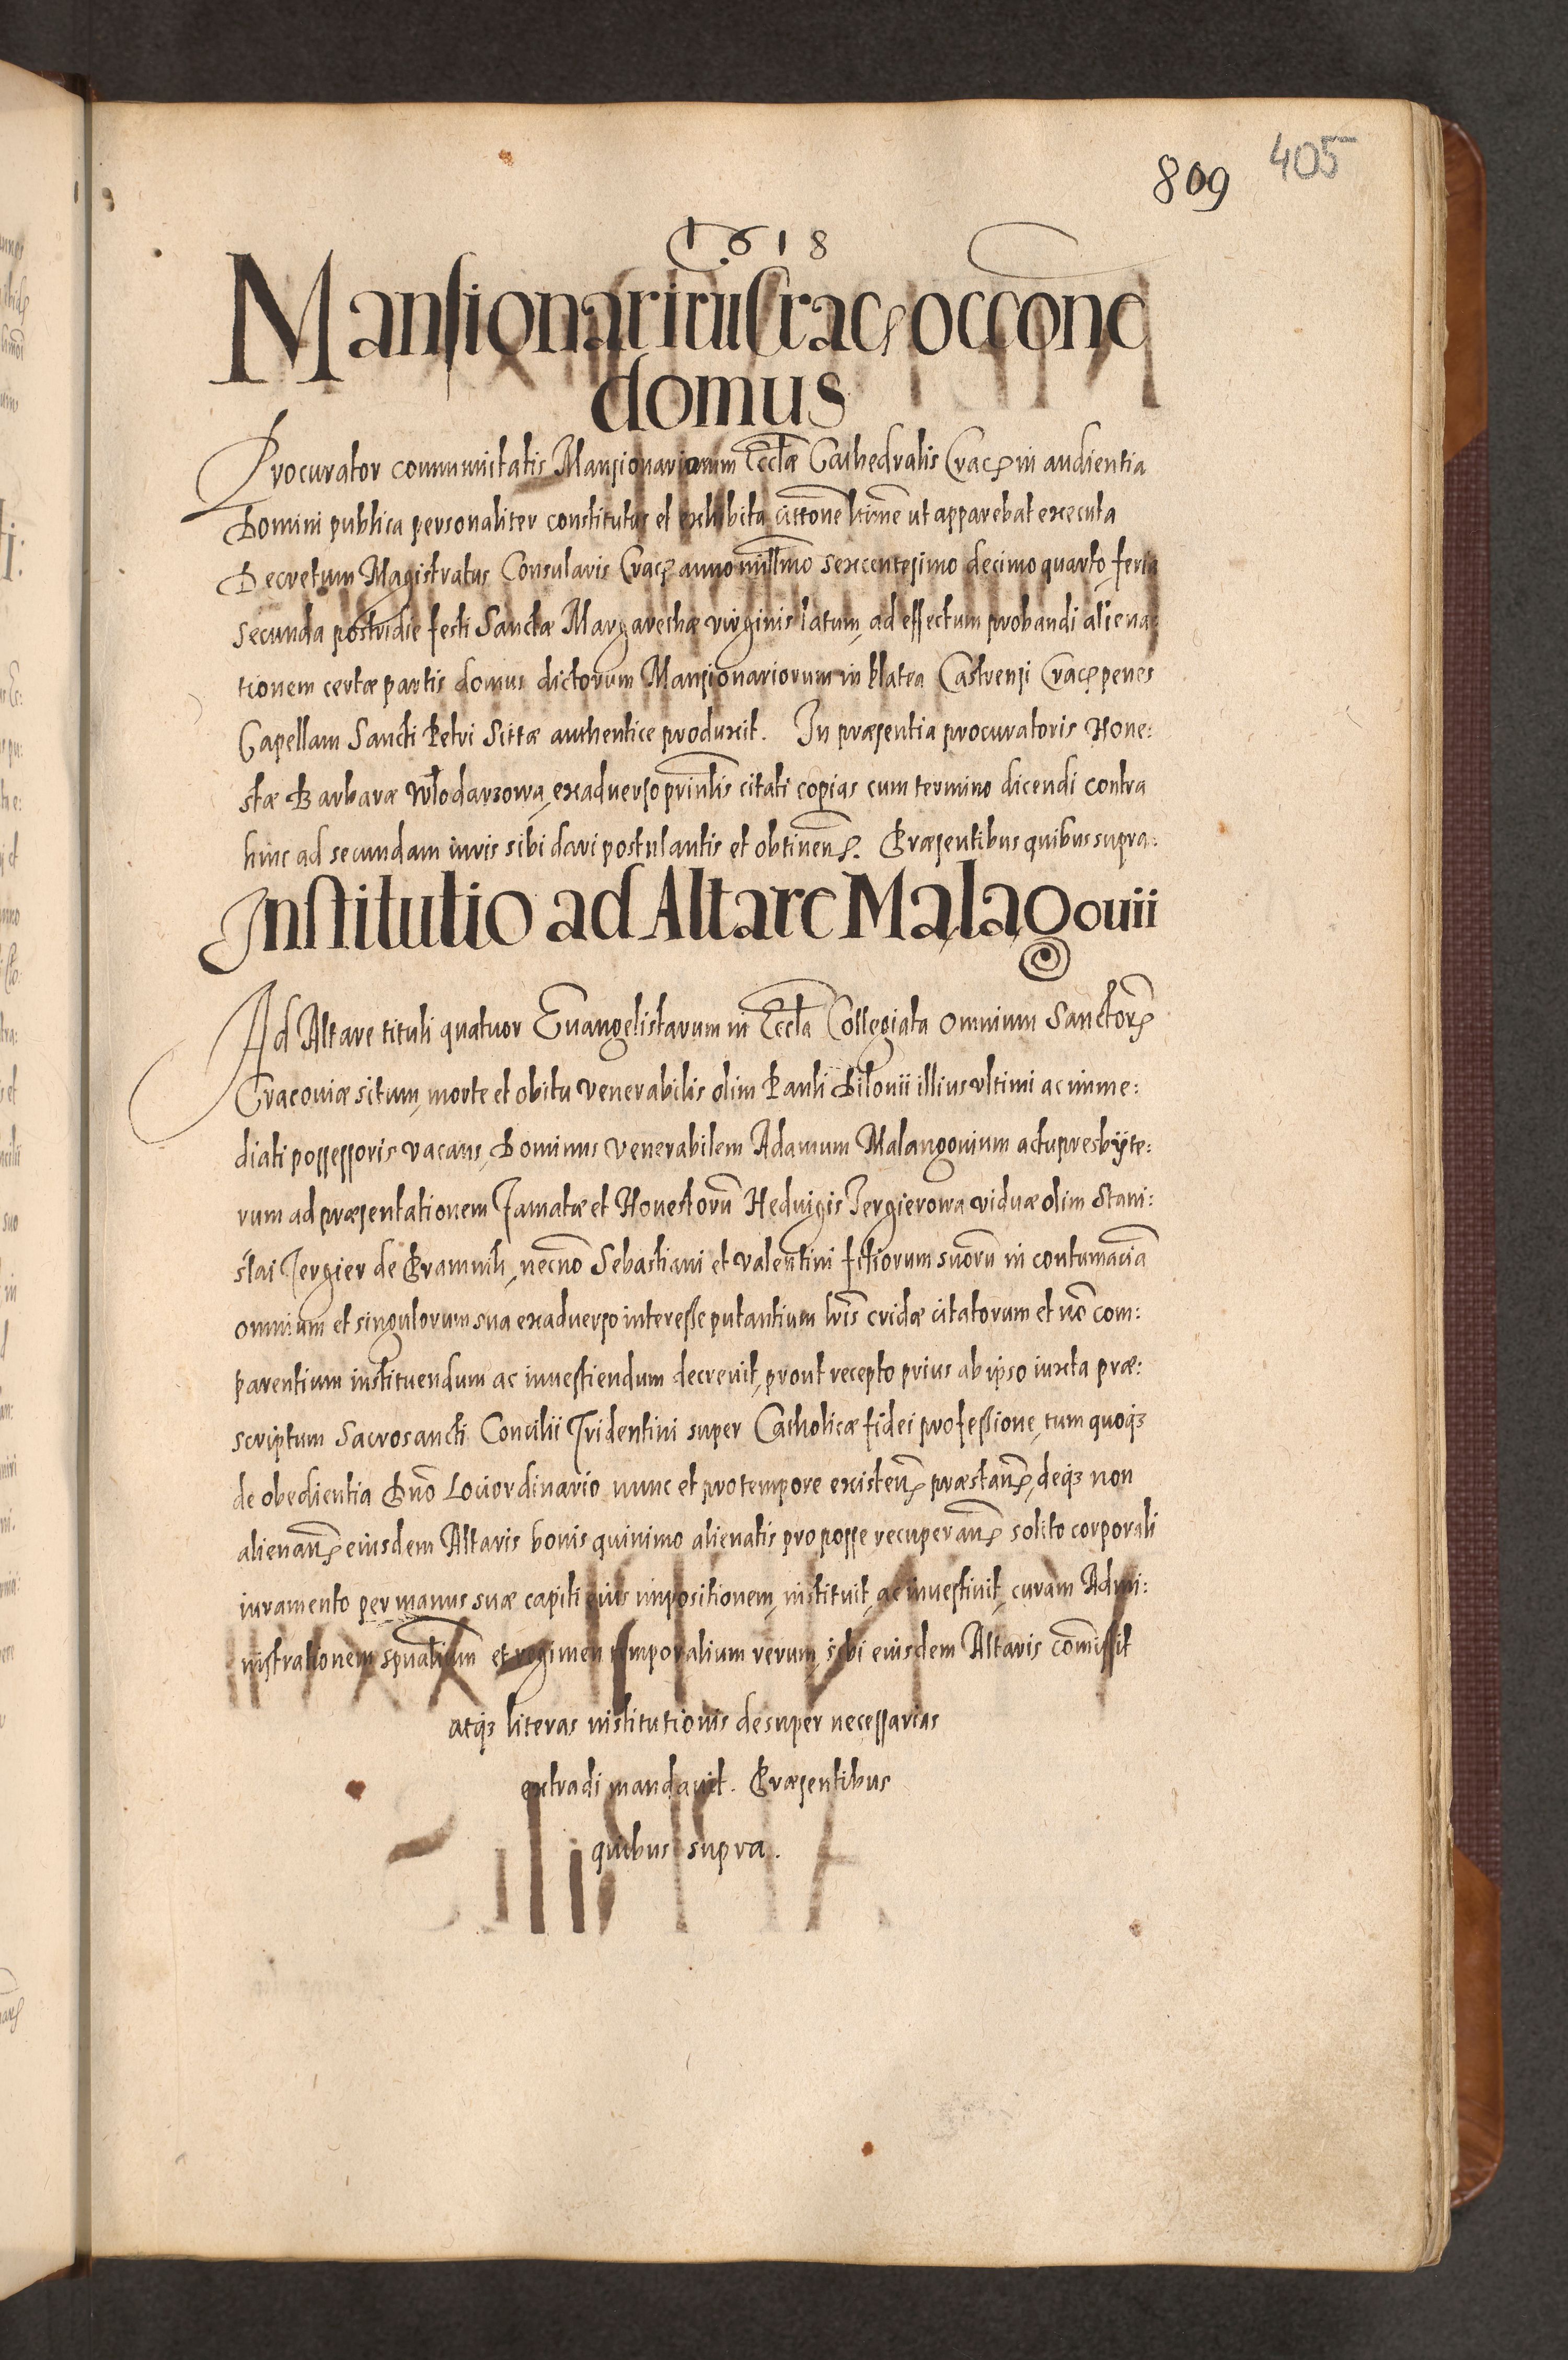 405
809
1618
Mansionarii occone
domus
Procurator communitatis Mansionariorum Eccłæ Cathedralis Crac in audientia
Domini publica personaliter constitutus et exhibita ut apparebat executa
Decretum Magistratus Consularis Crac anno millmo sexcentesimo decimo quarto, feria
secunda postridie festi Sanctæ Margarethæ virginis latum, ad effectum probandi aliena:
tionem certæ partis domus dictorum Mansionariorum in Platea Castrensi Crac penes
Capellam Sancti Petri Sittæ authentice produxit. In præsentia procuratoris Hone:
stæ Barbaræ Włodarzowa, exaduerso prinlis citati copias cum termino dicendi contra
hinc ad secundam iuris sibi dari postulantis et obtinen. Præsentibus quibus supra:
Institutio ad Altare Malagouii
Ad Altare tituli quatuor Euangelistarum in Eccła Collegiata Omnium Sanctor
Cracouiæ situm, morte et obitu venerabilis olim Pauli Bilouii illius vltimi ac imme:
diati possessoris vacans, Dominus venerabilem Adamum Malangouium actu presbÿte:
rum ad præsentationem Famatæ et Honestorū Heduigis Jergierowa viduæ olim Stani:
slai Jergier de Pramnik, necno Sebastiani et valentini filiorum suorū in contumaciā
omnium et singulorum sua exaduerso interesse putantium lris cridæ citatorum et nō com:
parentium instituendum ac inuestiendum decreuit, prout recepto prius ab ipso iuxta præ:
scriptum Sacrosancti Concilii Tridentini super Catholicæ fidei professione, tum quoqz
de obedientia Dnō Loci ordinario nunc et pro tempore existen præstan, deqz non
alienan eiusdem Altaris bonis quinimo alienatis pro posse recuperan solito corporali
iuramento per manus suæ capiti eius impositionem, instituit, ac inuestiuit, curam Admi:
nistrationem spualium et regimen temporalium rerum, sibi eiusdem Altaris comissit
atqz literas institutionis desuper necessarias
extradi mandauit. Præsentibus
quibus supra.